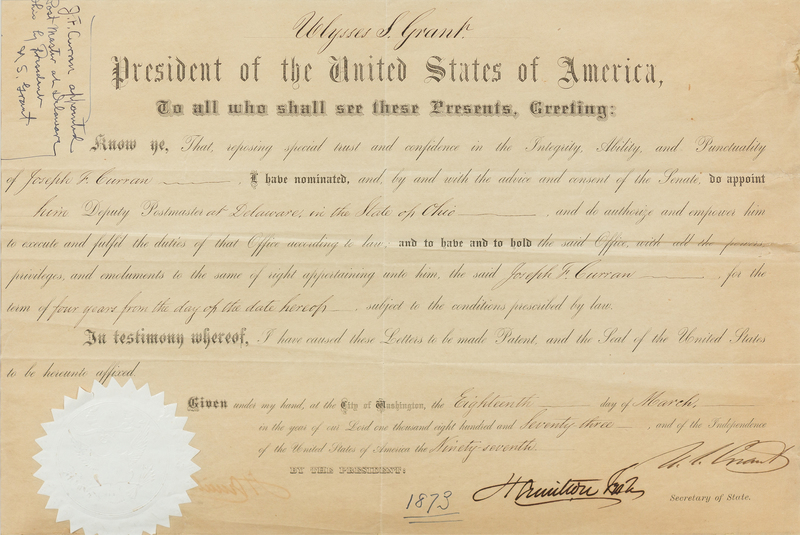 J. F. Curran appointed
Post Master at Delaware
Ohio by President
U. S. Grant
Ulysses S. Grant.
President of the United States of America,
To all who shall see these Presents, Greeting:
Know ye, That, reposing special trust and confidence in the Integrity, Ability, and Punctuality
of Joseph F. Curran, I have nominated, and, by and with the advice and consent of the Senate, do appoint
him Deputy Postmaster at Delaware, in the State of Ohio, and do authorize and empower him
to execute and fulfil the duties of that Office according to law, and to have and to hold the said Office, with all the powers,
privileges, and emoluments to the same of right appertaining unto him, the said Joseph F. Curran, for the
term of four years from the day of the date hereof, subject to the conditions prescribed by law.
In testimony whereof, I have caused these Letters to be made Patent, and the Seal of the United States
to be hereunto affixed.
Given under my hand, at the City of Washington, the Eighteenth day of March,
in the year of our Lord one thousand eight hundred and Seventy three, and of the Independence
of the United States of America the Ninety-seventh.
BY THE PRESIDENT:
U. S. Grant
Hamilton Fish
Secretary of State.
1873